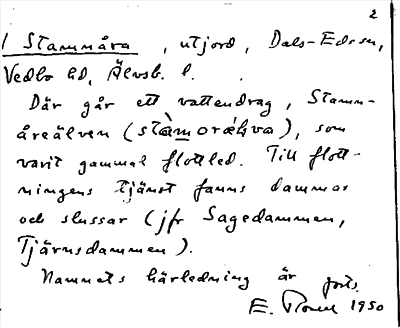 2
/ Stammåra, utjord, Dals-Edsn,
Vedbo hd, Älvsb. l.
Där går ett vattendrag, Stamm-
åreälven (stàmoräḱva), som
varit gammal flottled. Till flott-
ningens tjänst fanns dammar
och slussar (jfr Sagedammen,
Tjärnsdammen).
Namnets härledning är forts.
E. 1950